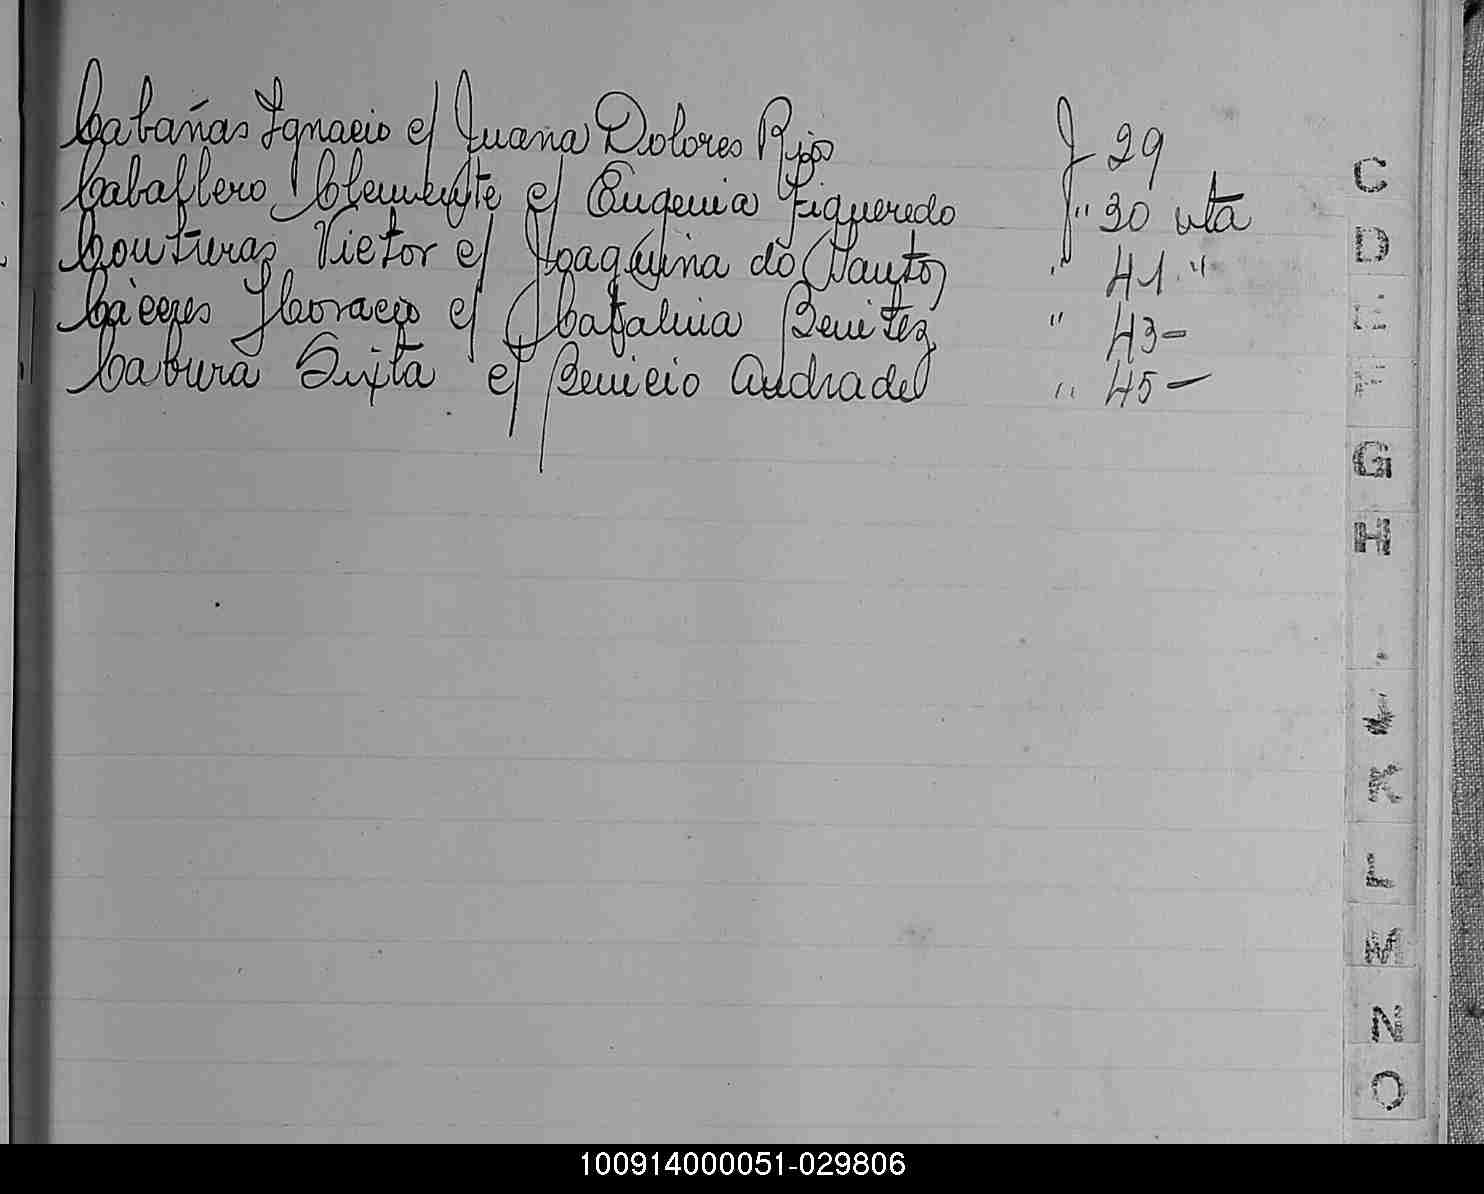 Cabañas Ignacio c/ Juana Dolores Rios f 29
Caballero Clemente c/ Eugenia Figueredo " 30 vta
Couturas Victor c/ Joaquina do Santos " 41 "
Cáceres Horacio c/ Catalina Benitez " 43 -
Cabura Sixta c/ Benicio Andrade " 45 -
C
D
E
F
G
H
K
L
M
N
O
100914000051-029806